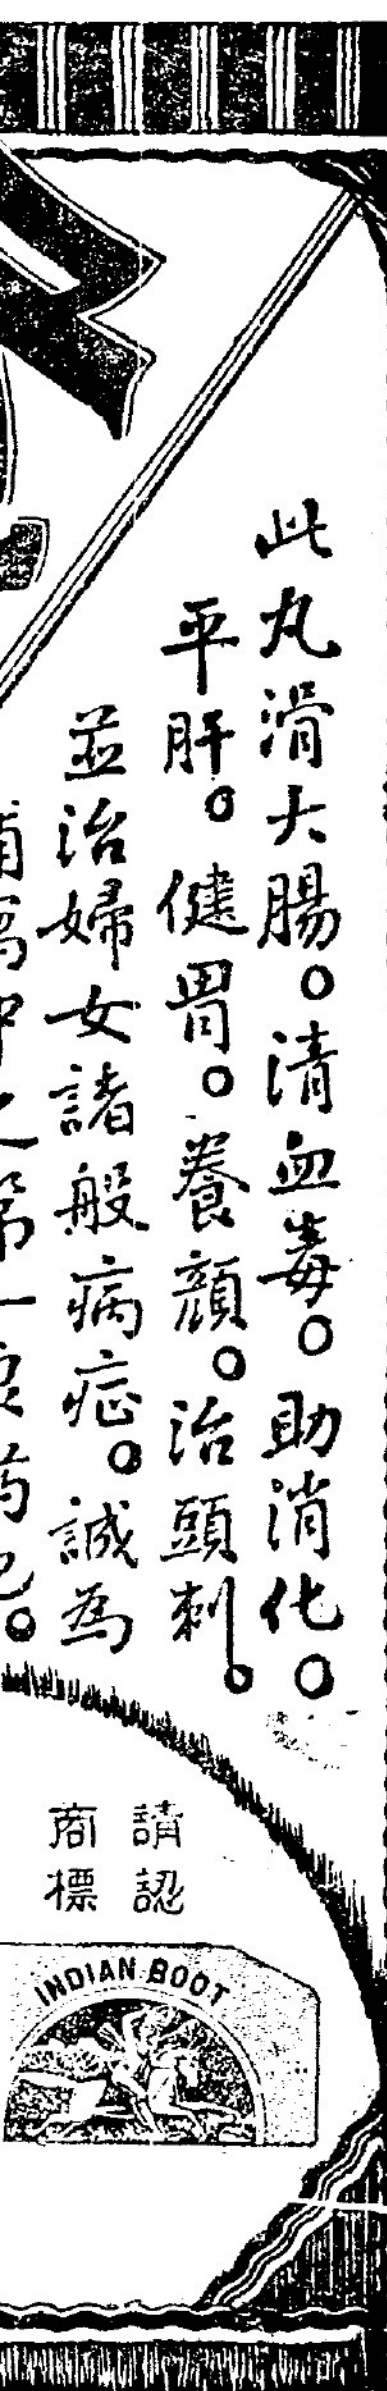 此丸滑大腸。清血毒。助消化。
平肝。健胃。養顏。治頭刺。
並治婦女諸般病症。誠為
中之第一良药也。
請認
商標
INDIAN BOOT